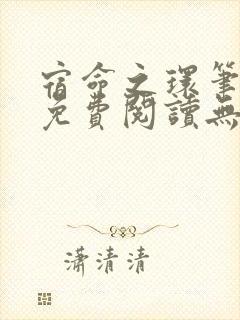 宿命之環筆
免費閱讀無
瀟清清